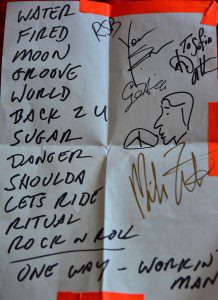 WATER
FIRED
MOON
GROOVE
WORLD
BACK 2 U
SUGAR
DANGER
SHOULDA
LETS RIDE
RITUAL
ROCK N ROLL
ONE WAY - WORKIN'
MAN
RSB
To Sofia